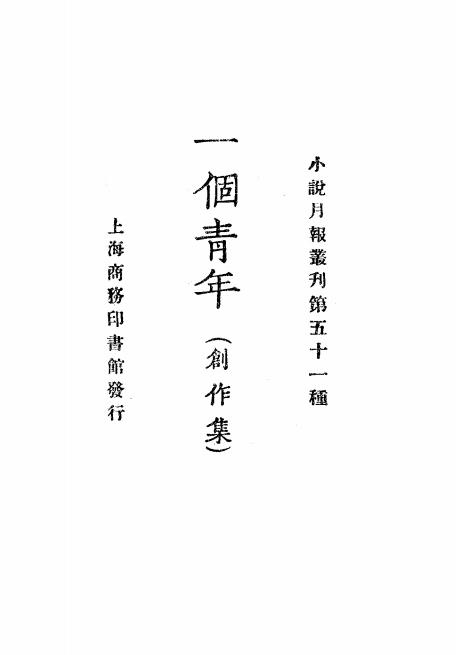 小說月報叢刊第五十一種
一個青年（創作集）
上海商務印書館發行